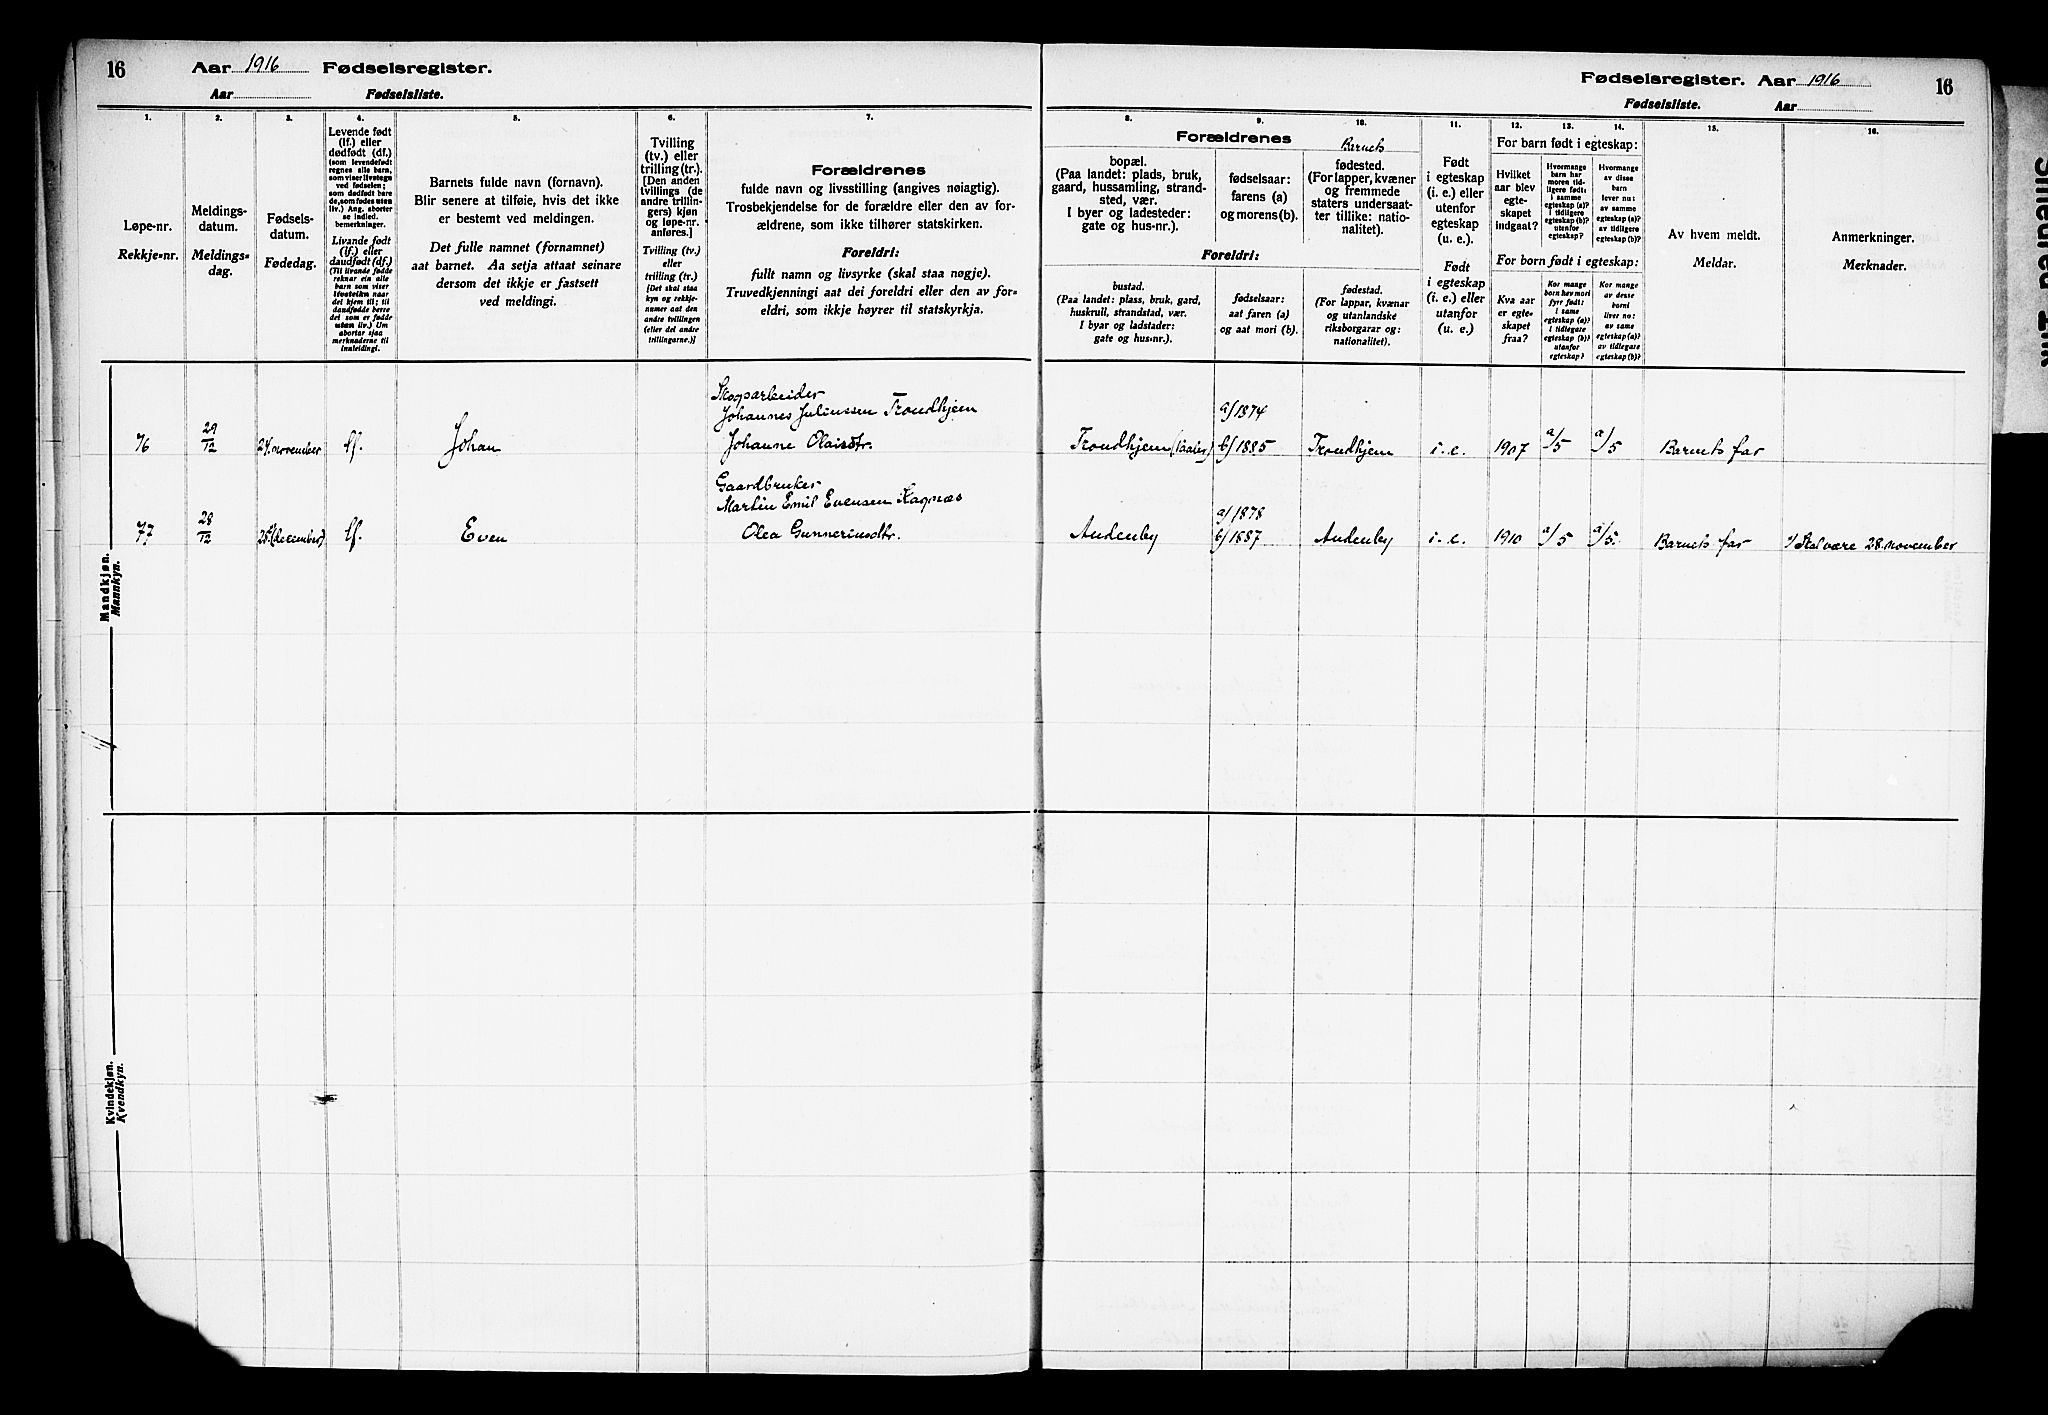 16
Aar 1916 Fødselsregister.
Aar Fødselsliste.
1.
2.
3.
4.
5.
6.
7.
Løpe-nr.
Rekkje-nr.
Meldings-
datum.
Meldings-
dag.
Fødsels-
datum.
Fødedag.
Levende født
(lf.) eller
dødfødt (df.)
(som levendefødt
regnes alle barn,
som viser livstegn
ved fødselen;
som dødfødt bare
de, som fødes uten
liv.) Ang. aborter
se indled.
bemerkninger.
Livande født
(lf.) eller
daudfødt (df.)
(Til livande fødde
reknar ein alle
barn som viser
livsteikn naar
det kjem til; til
daudfødde berre
dei som er fødde
utan liv.) Um
abortar sjaa
merknaderne til
innleidingi.
Barnets fulde navn (fornavn).
Blir senere at tilføie, hvis det ikke
er bestemt ved meldingen.
Det fulle namnet (fornamnet)
aat barnet. Aa setja attaat seinare
dersom det ikkje er fastsett
ved meldingi.
Tvilling
(tv.) eller
trilling (tr.).
[Den anden
tvillings (de
andre trillin-
gers) kjøn
og løpe-nr.
anføres.]
Tvilling (tv.)
eller
trilling (tr.)
[Det skal staa
kyn og rekkje-
numer aat den
andre tvillingen
(eller dei andre
trillingarne.)]
Forældrenes
fulde navn og livsstilling (angives nøiagtig).
Trosbekjendelse for de forældre eller den av for-
ældrene, som ikke tilhører statskirken.
Foreldri:
fullt namn og livsyrke (skal staa nøgje).
Truvedkjenningi aat dei foreldri eller den av for-
eldri, som ikkje høyrer til statskyrkja.
Mandkjøn.
Mannkyn.
76
29/12
24. november
lf.
Johan
Skogsarbeider
Johannes Juliussen Trondhjem
Johanne Olaisdtr.
77
28/12
28. (december)
lf.
Even
Gaardbruker
Martin Emil Evensen Kagnæs
Olea Gunneriusdtr.
Kvindekjøn.
Kvendkyn.
Fødselsregister. Aar 1916
16
Fødselsliste. Aar
8.
9.
10.
11.
12.
13.
14.
15.
16.
Forældrenes
Barnets
bopæl.
(Paa landet: plads, bruk,
gaard, hussamling, strand-
sted, vær.
I byer og ladesteder:
gate og hus-nr.).
fødselsaar:
farens (a)
og morens (b).
fødested.
(For lapper, kvæner
og fremmede
staters undersaat-
ter tillike: natio-
nalitet).
Foreldri:
bustad.
(Paa landet: plass, bruk, gard,
huskrull, strandstad, vær.
I byar og ladstader:
gate og hus-nr.).
fødselsaar:
aat faren (a)
og aat mori (b).
fødestad.
(For lappar, kvænar
og utanlandske
riksborgarar og:
nationalitet).
Født
i egteskap
(i. e.) eller
utenfor
egteskap
(u. e.).
Født
i egteskap
(i. e.) eller
utanfor
egteskap
(u. e.)
For barn født i egteskap:
Hvilket
aar blev
egte-
skapet
indgaat?
Hvormange
barn har
moren tid-
ligere født:
i samme
egteskap (a)?
i tidligere
egteskap (b)?
utenfor
egteskap?
Hvormange
av disse
barn
lever nu:
av samme
egteskap (a)?
av tidligere
egteskap (b)?
For born født i egteskap:
Kva aar
er egte-
skapet
fraa?
Kor mange
born hev mori
fyrr født:
i same
egteskap (a)?
i tidlegare
egteskap (b)?
utanfor
egteskap?
Kor mange
av desse
borni
liver no:
av same
egteskap (a)?
av tidlegare
egteskap (b)?
Av hvem meldt.
Meldar.
Anmerkninger.
Merknader.
Trondhjem
a) 1874
b) 1885
Trondhjem
i. e.
1907
a/5
a/5
Barnets far
Andenby
a) 1878
b) 1887
Andenby
i. e.
1910
a/5
a/5.
Barnets far
Skal være 28. november